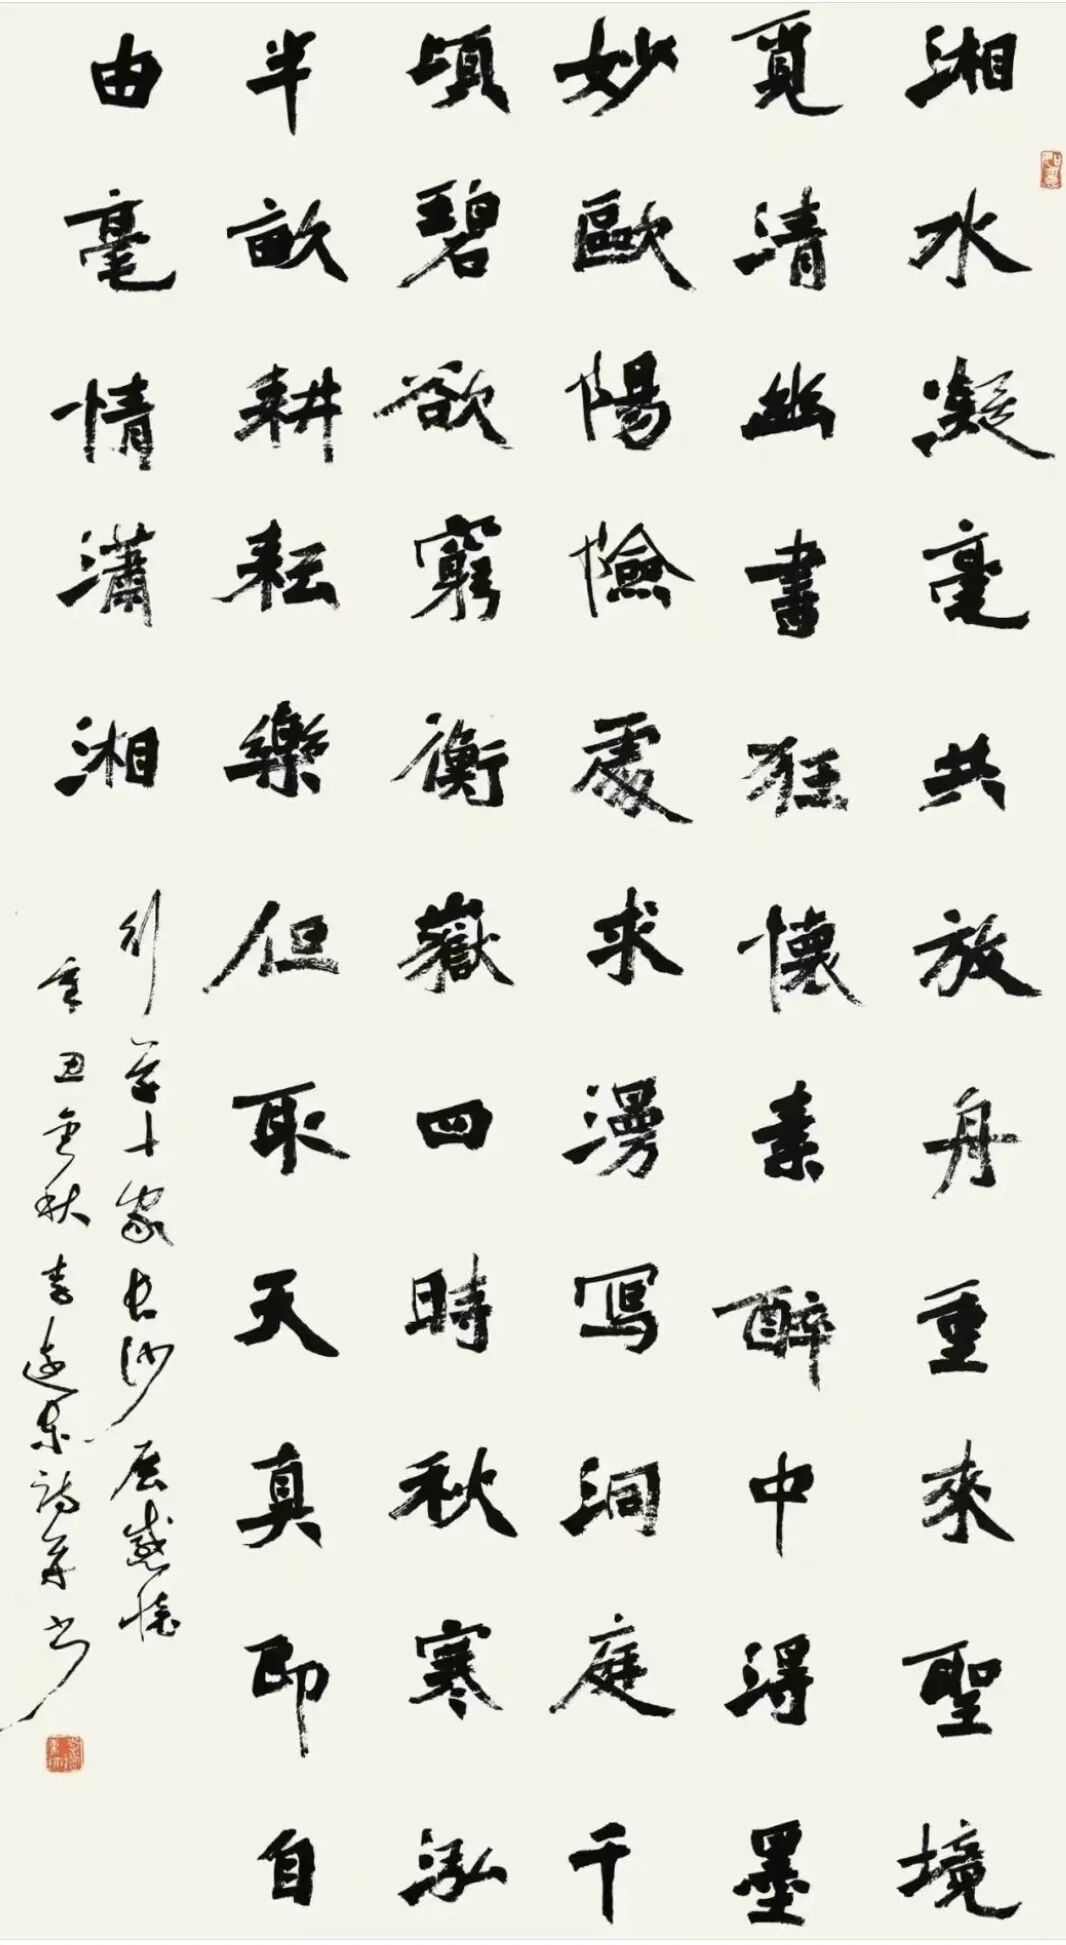 湘水凝毫共放舟重來聖境
覓清幽書狂懷素醉中得墨
妙歐陽險處求漫寫洞庭千
頃碧欲窮衡嶽四時秋寒泓
半畝耕耘樂但取天真即自
由毫情瀟湘
行草十家長沙展感懷
辛丑金秋李遠東詩并書